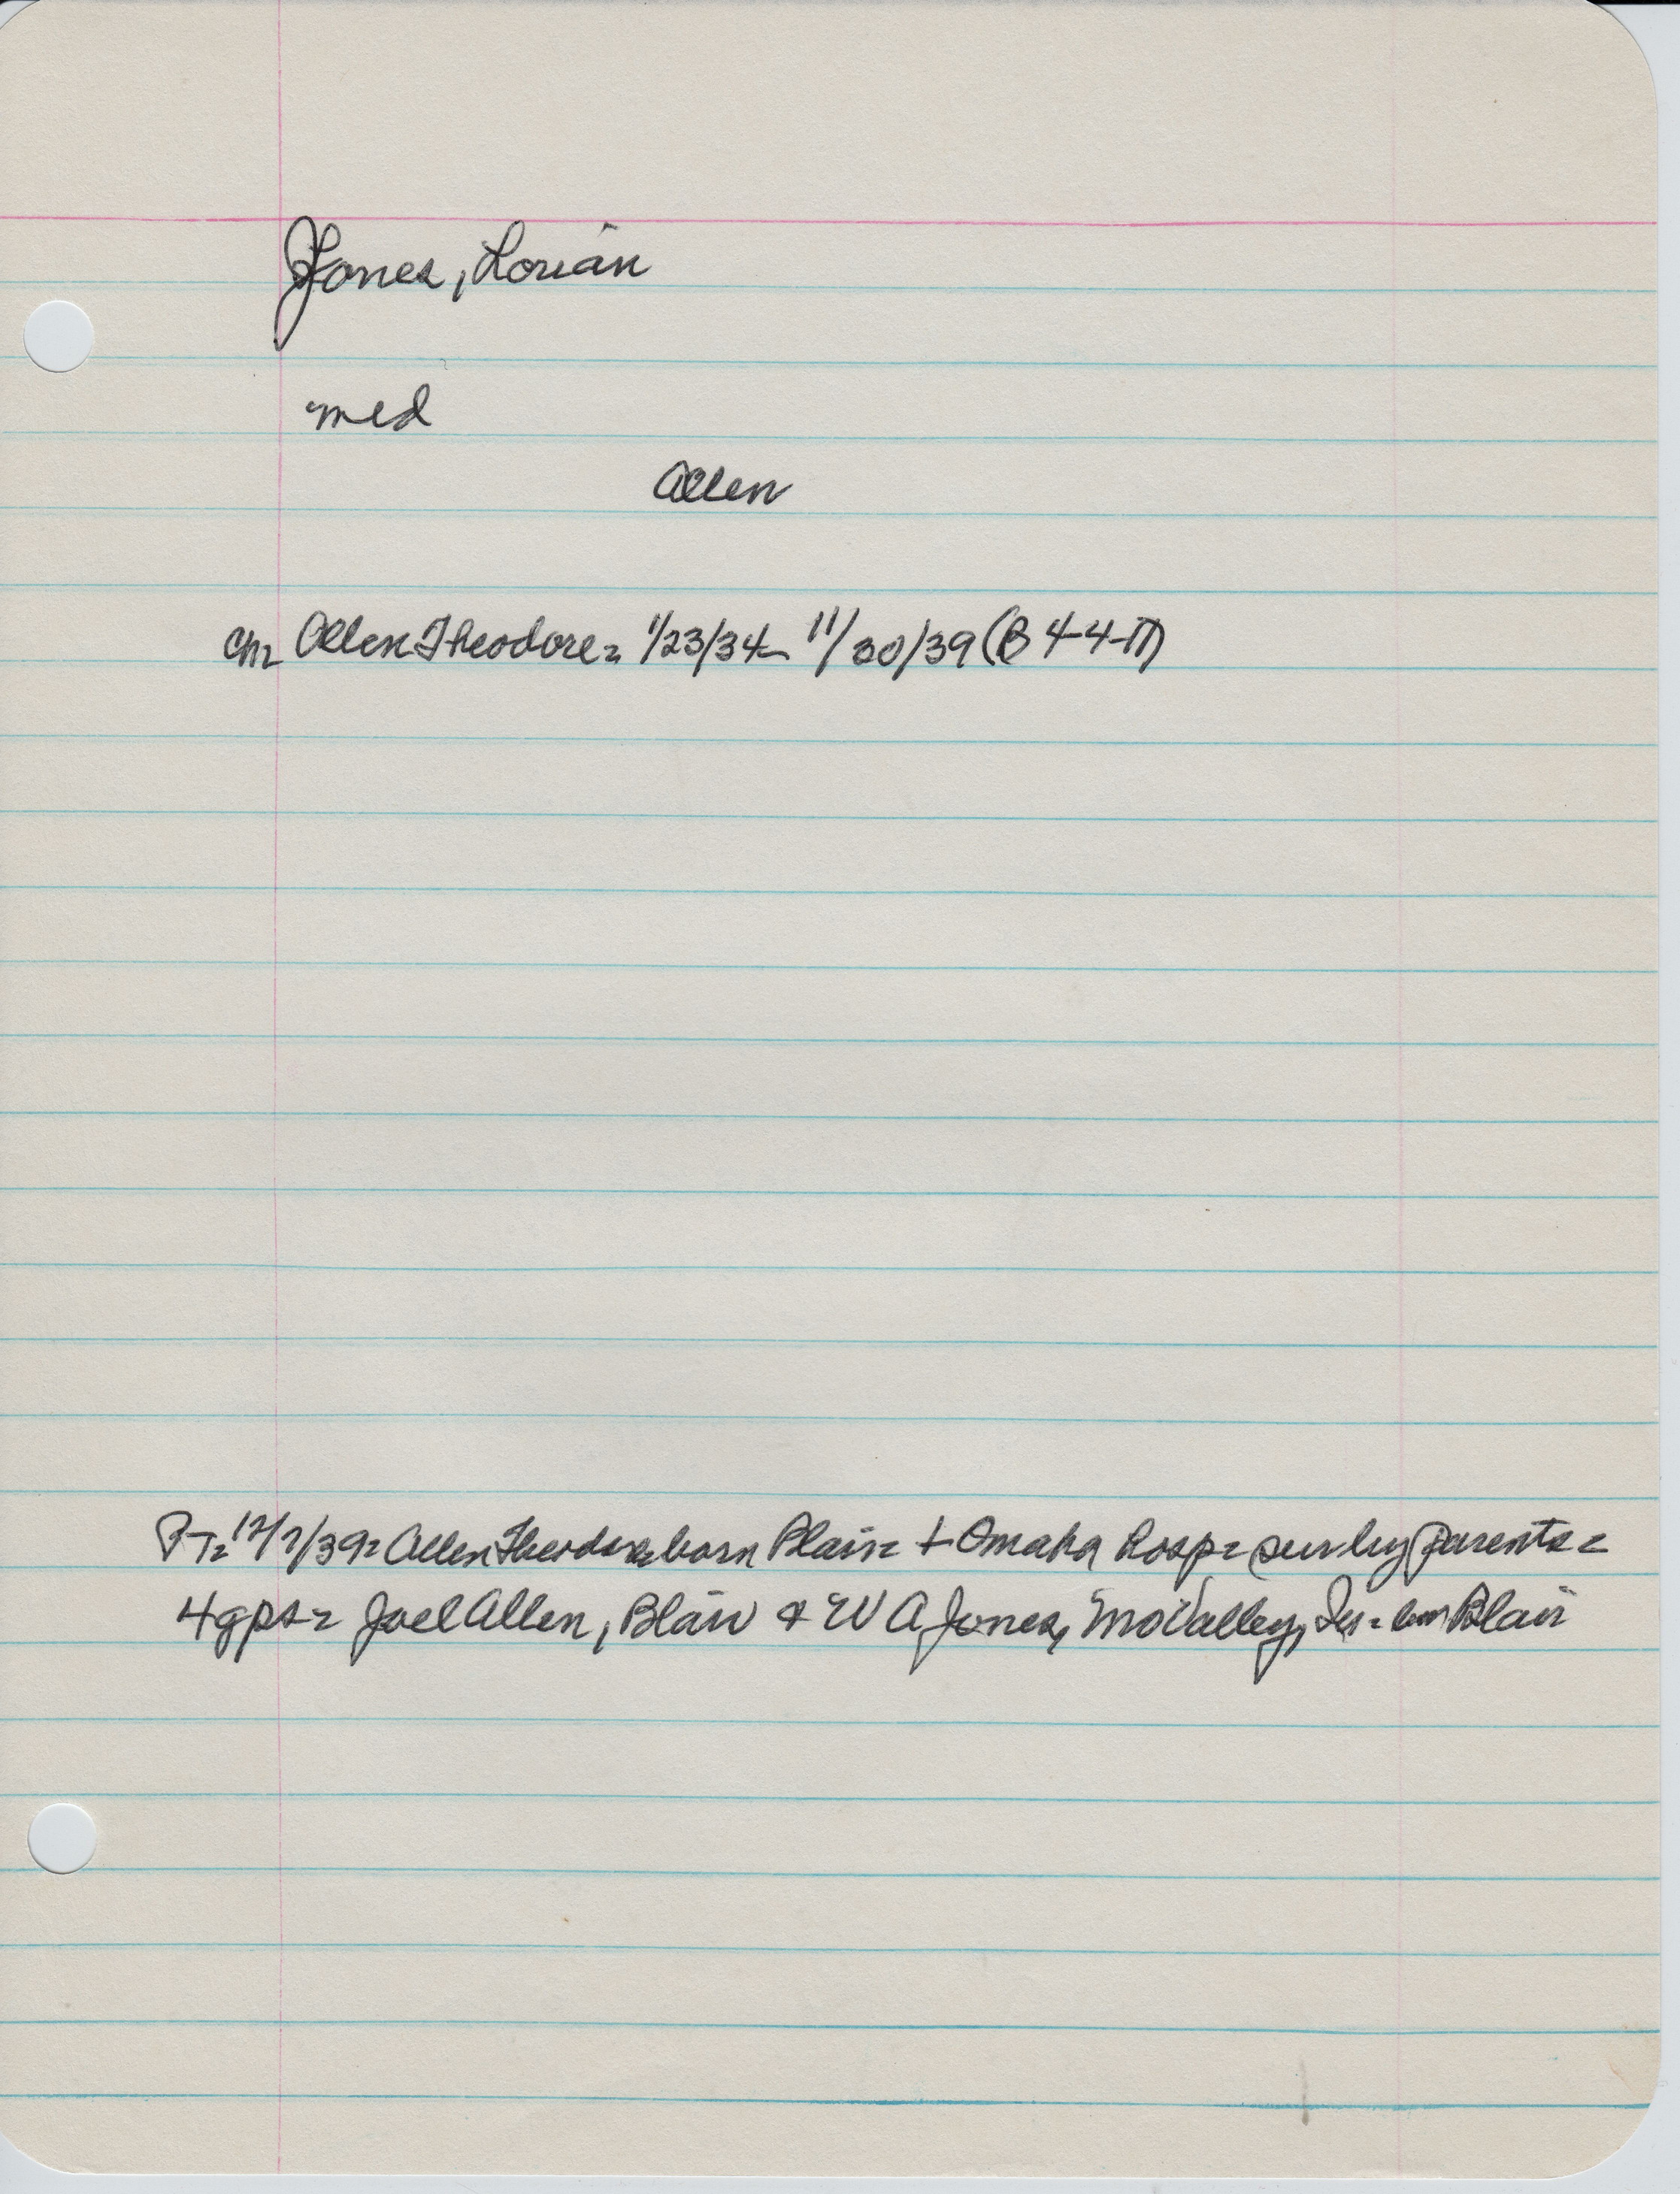 Jones, Lorian
med
Allen
ch= Allen Theodore= 1/23/34- 11/30/39 (B 4-4-17)
PT= 12/7/39= Allen Theodore= born Blair= + Omaha Hosp= sur by parents=
4gps= Joel Allen, Blair & W A Jones, Mo Valley, = bur Blair